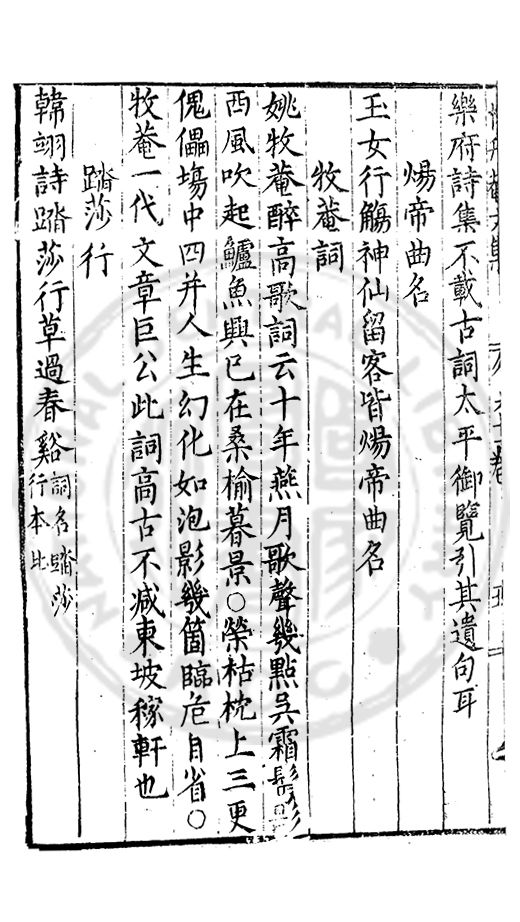 樂府詩集不載古詞太平御覽引其遺句耳
煬帝曲名
玉女行觴神仙留客皆煬帝曲名
牧菴詞
姚牧菴醉高歌詞云十年燕月歌聲幾點吳霜髩影
西風吹起鱸魚興已在桑榆暮景○榮枯枕上三更
傀儡塲中四并人生幻化如泡影幾箇臨危自省○
牧菴一代文章巨公此詞高古不减東坡稼軒也
踏莎行
韓翃詩踏莎行草過春谿詞名踏莎
行本此